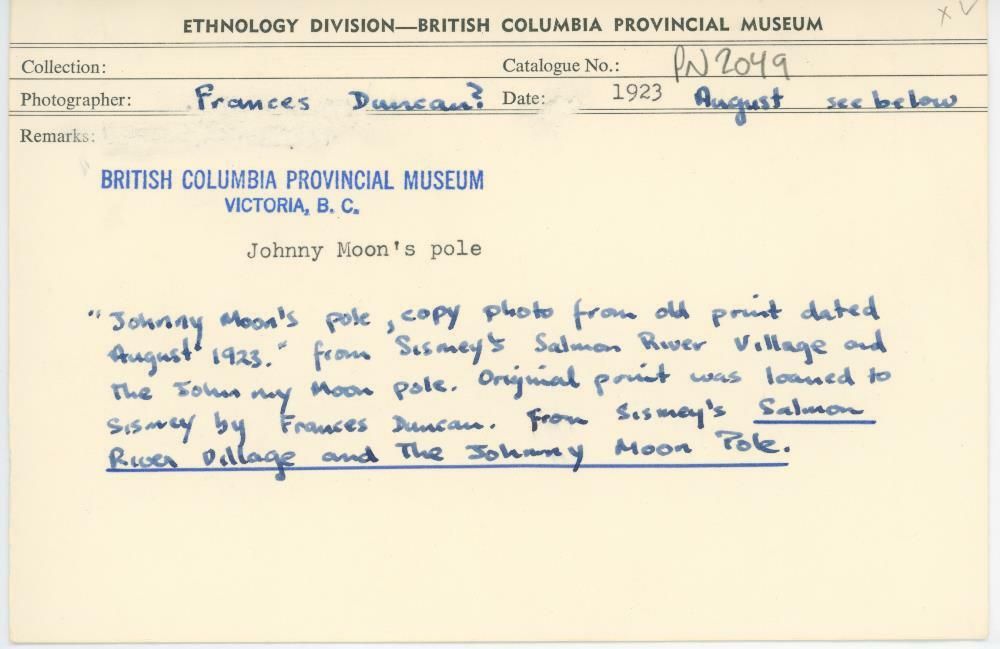 x ✓
ETHNOLOGY DIVISION—BRITISH COLUMBIA PROVINCIAL MUSEUM
Collection: Catalogue No.: PN 2049
Photographer: Frances Duncan? Date: 1923 August see below
Remarks:
BRITISH COLUMBIA PROVINCIAL MUSEUM
VICTORIA, B. C.
Johnny Moon's pole
"Johnny Moon's pole, copy photo from old print dated
August 1923." from Sismey's Salmon River Village and
The Johnny Moon pole. Original print was loaned to
Sismey by Frances Duncan. From Sismey's Salmon
River Village and The Johnny Moon Pole.